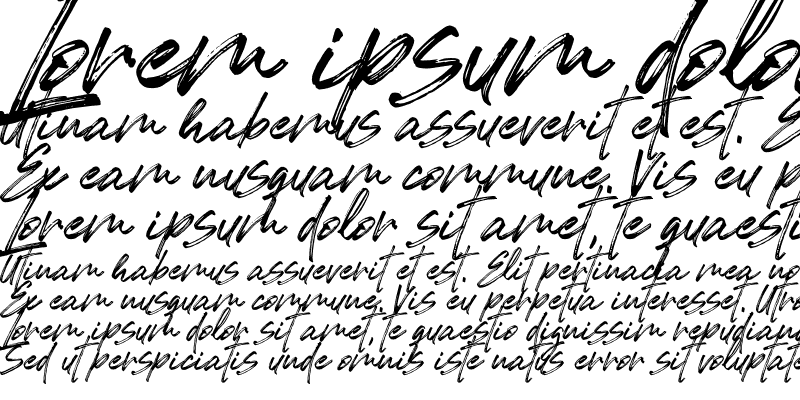 Lorem ipsum dolo
Utinam habemus assueverit et est. E
Ex eam nusquam commune. Vis eu p
Lorem ipsum dolor sit amet, te quaesti
Utinam habemus assueverit et est. Elit pertinacia mea no
Ex eam nusquam commune. Vis eu perpetua interesset. Utro
Lorem ipsum dolor sit amet, te quaestio dignissim repudianda
Sed ut perspiciatis unde omnis iste natus error sit voluptate